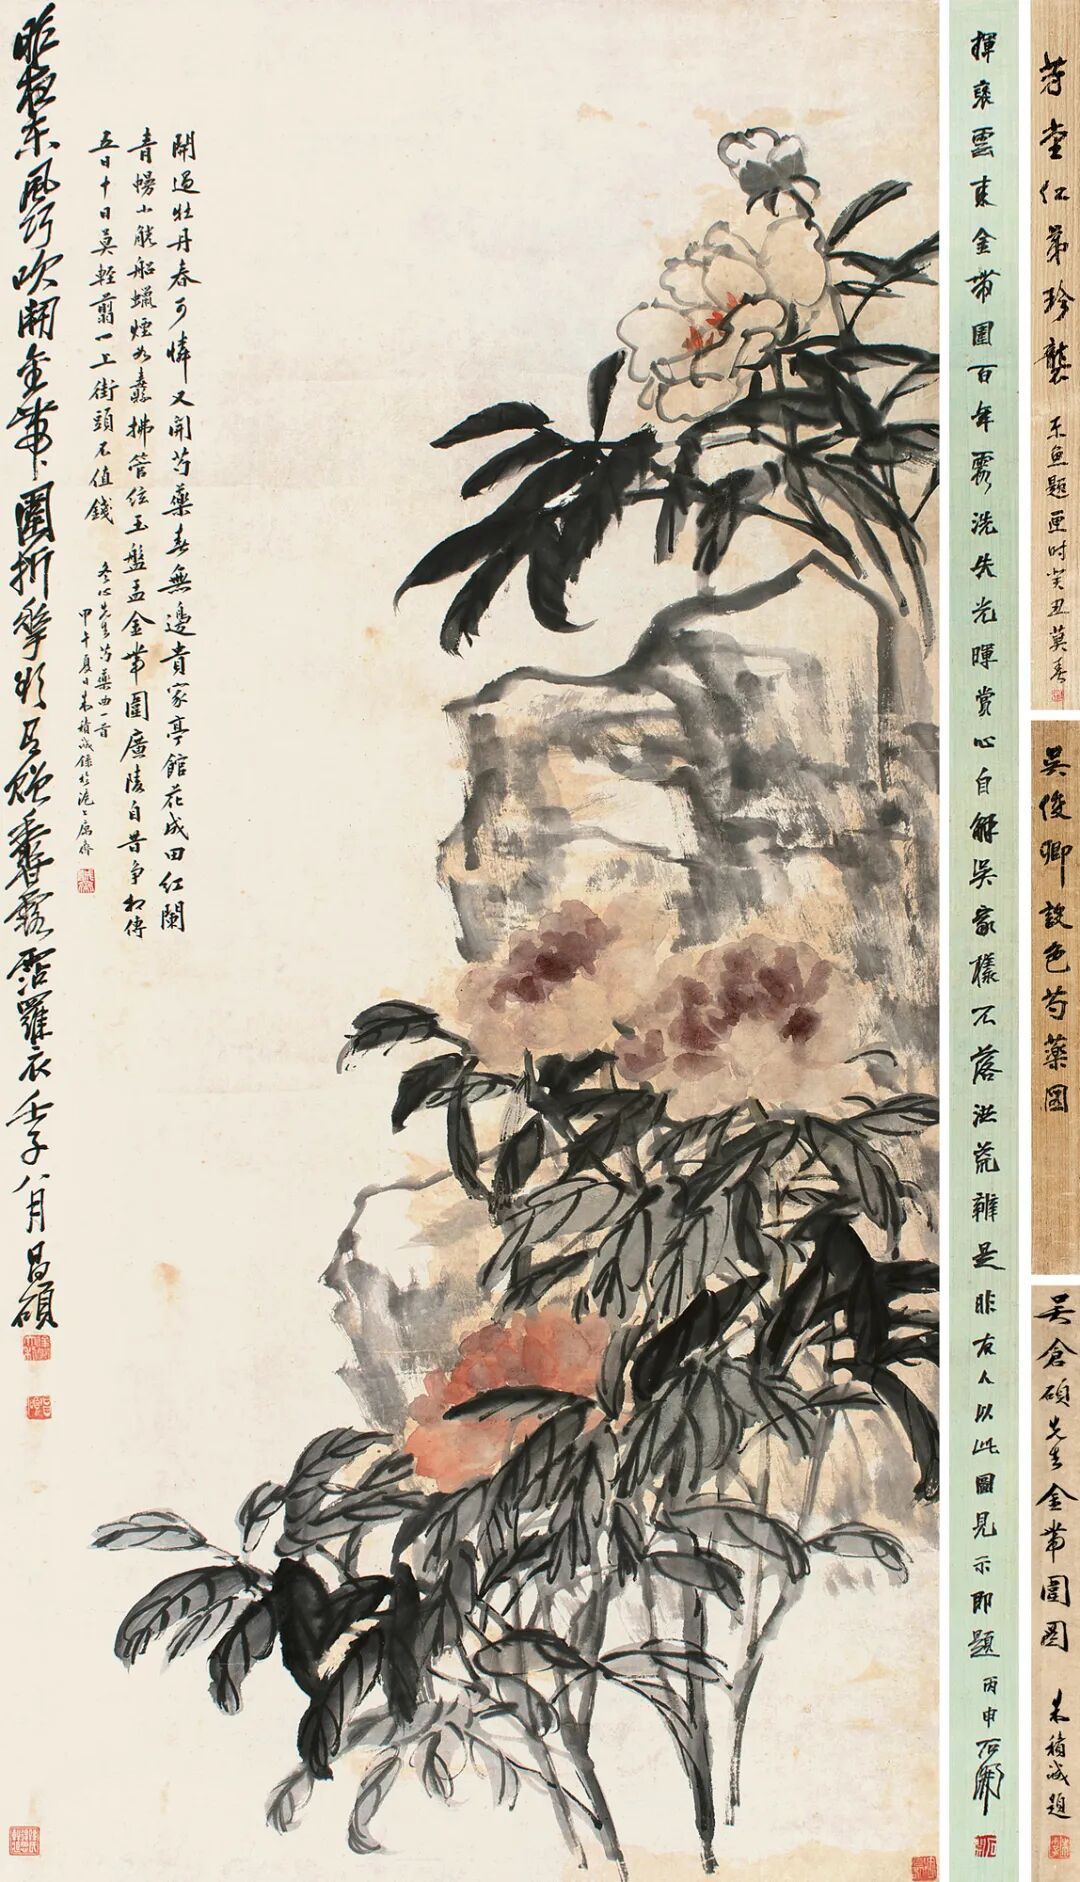 昨夜东風巧吹開金帶圍折擎欲有贈垂香露霑羅衣壬子八月昌碩
開過牡丹春可憐又開芍藥春無邊貴家亭館花成田紅闌
青幔小舷船蠟煙如霧拂管弦玉盤盂金帶圍廣陵自昔争相傳
五日十日莫輕翦一上街頭不值錢
冬心先生芍藥曲一首
甲午夏日朱積誠錄於滬上寓齋
揮袞雲東金帶圍百年霧洗失光暉賞心自解吳家樣不落洪荒辨是非右人以此圖見示即題丙申石
堂仁弟珍襲
題匣時癸丑莫春
吳俊卿設色芍藥圖
吳倉碩先生金帶圍圖
朱積誠題